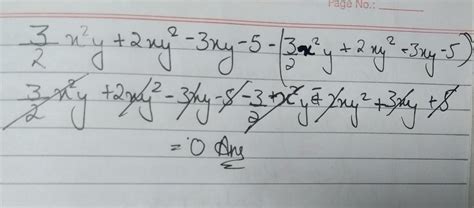 Page No.:
3/2 x²y + 2xy² - 3xy - 5 - (3/2 x²y + 2xy² - 3xy - 5)
3/2 x²y + 2xy² - 3xy - 5 - 3/2 x²y - 2xy² + 3xy + 5
= 0 Ans